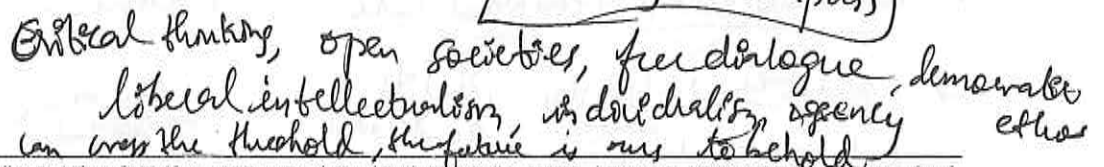 Critical thinking, open societies, free dialogue, democratic
liberal intellectualism, individualism, agency ethos
can cross the threshold, the future is ours to behold,